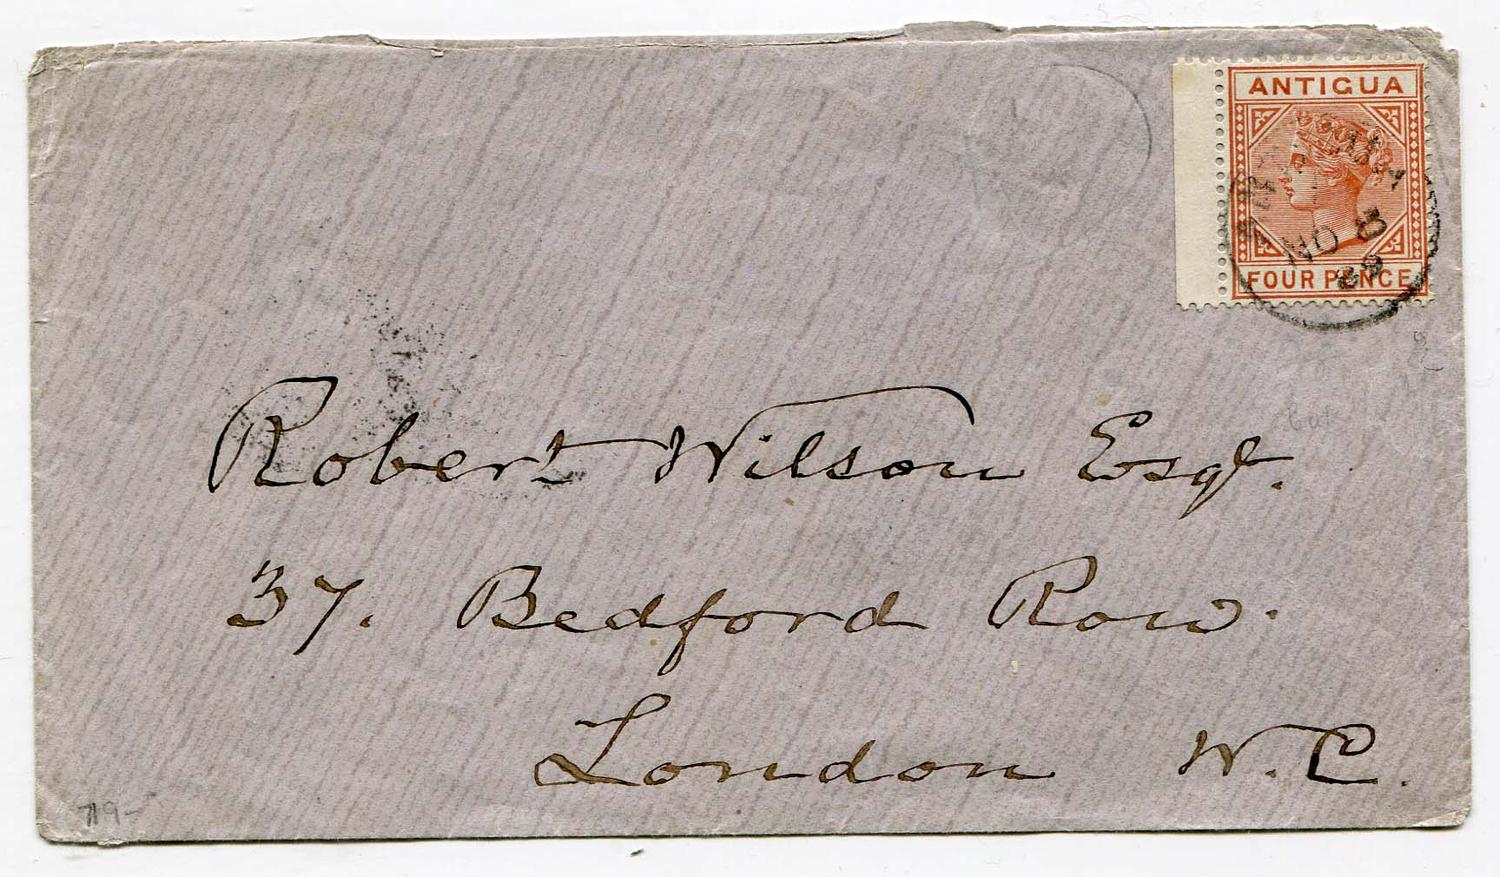 ANTIGUA
NO 8
89
FOUR PENCE
Robert Wilson Esqr.
37. Bedford Row.
London W.C.